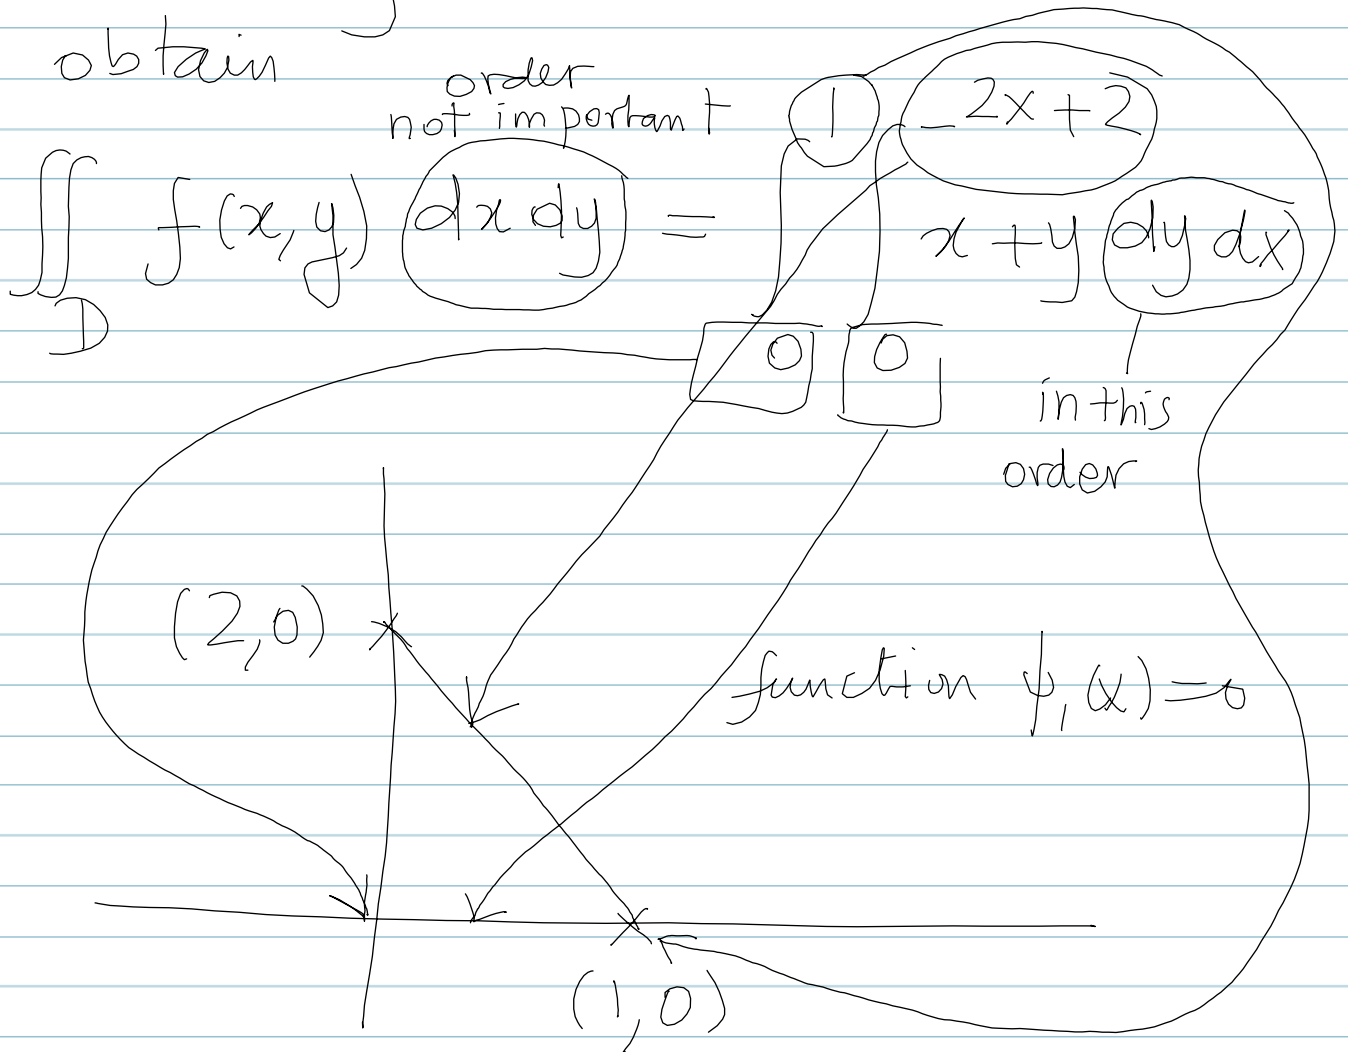 obtain
order
not important
1 -2x+2
∬ f(x,y) dx dy = ∫ ∫ x+y dy dx
D
0 0
in this
order
(2,0)
function ψ₁(x)=0
(1,0)